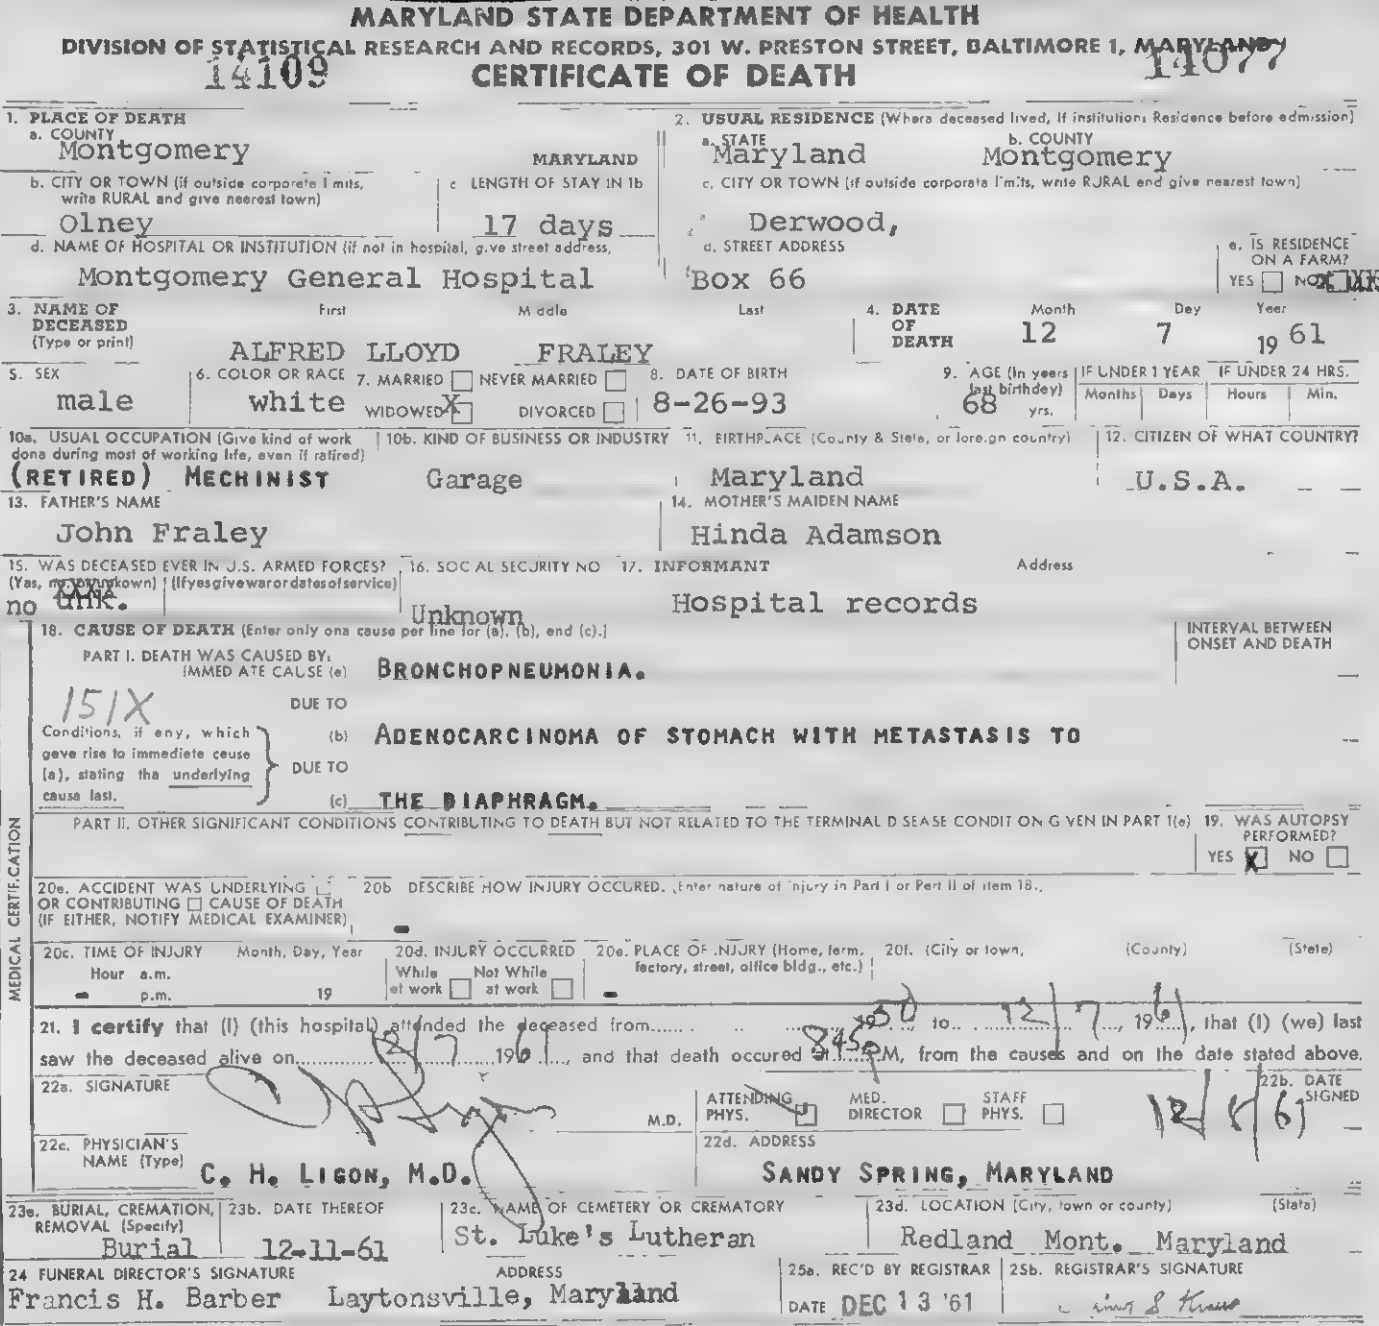 MARYLAND STATE DEPARTMENT OF HEALTH
DIVISION OF STATISTICAL RESEARCH AND RECORDS, 301 W. PRESTON STREET, BALTIMORE 1, MARYLAND
14109 CERTIFICATE OF DEATH 14077
1. PLACE OF DEATH
a. COUNTY
Montgomery MARYLAND
2. USUAL RESIDENCE (Where deceased lived, If institution: Residence before admission)
a. STATE b. COUNTY
Maryland Montgomery
b. CITY OR TOWN (if outside corporate limits, write RURAL and give nearest town)
Olney
c LENGTH OF STAY IN 1b
17 days
c. CITY OR TOWN (if outside corporate limits, write RURAL and give nearest town)
Derwood,
d. NAME OF HOSPITAL OR INSTITUTION (if not in hospital, give street address,
Montgomery General Hospital
d. STREET ADDRESS
Box 66
e. IS RESIDENCE ON A FARM?
YES NO
3. NAME OF DECEASED (Type or print)
First Middle Last
ALFRED LLOYD FRALEY
4. DATE OF DEATH
Month Day Year
12 7 19 61
5. SEX
male
6. COLOR OR RACE
white
7. MARRIED NEVER MARRIED
WIDOWED X DIVORCED
8. DATE OF BIRTH
8-26-93
9. AGE (In years last birthday)
68 yrs.
IF UNDER 1 YEAR IF UNDER 24 HRS.
Months Days Hours Min.
10a. USUAL OCCUPATION (Give kind of work done during most of working life, even if retired)
(RETIRED) MECHINIST
10b. KIND OF BUSINESS OR INDUSTRY
Garage
11. BIRTHPLACE (County & State, or foreign country)
Maryland
12. CITIZEN OF WHAT COUNTRY?
U.S.A.
13. FATHER'S NAME
John Fraley
14. MOTHER'S MAIDEN NAME
Hinda Adamson
15. WAS DECEASED EVER IN U.S. ARMED FORCES?
(Yes, no, or unkown) (If yes give war or dates of service)
no unk.
16. SOCIAL SECURITY NO
Unknown
17. INFORMANT Address
Hospital records
18. CAUSE OF DEATH (Enter only one cause per line for (a), (b), and (c).)
INTERVAL BETWEEN ONSET AND DEATH
PART I. DEATH WAS CAUSED BY:
IMMEDIATE CAUSE (a) BRONCHOPNEUMONIA.
151X
DUE TO
Conditions, if any, which gave rise to immediate cause (a), stating the underlying cause last.
(b) ADENOCARCINOMA OF STOMACH WITH METASTASIS TO
DUE TO
(c) THE DIAPHRAGM.
PART II. OTHER SIGNIFICANT CONDITIONS CONTRIBUTING TO DEATH BUT NOT RELATED TO THE TERMINAL DISEASE CONDITION GIVEN IN PART 1(a)
19. WAS AUTOPSY PERFORMED?
YES X NO
20a. ACCIDENT WAS UNDERLYING
OR CONTRIBUTING CAUSE OF DEATH
(IF EITHER, NOTIFY MEDICAL EXAMINER)
20b DESCRIBE HOW INJURY OCCURED. (Enter nature of injury in Part I or Part II of item 18.)
20c. TIME OF INJURY Month, Day, Year
Hour a.m.
p.m. 19
20d. INJURY OCCURRED
While at work Not While at work
20e. PLACE OF INJURY (Home, farm, factory, street, office bldg., etc.)
20f. (City or town, (County) (State)
MEDICAL CERTIFICATION
21. I certify that (I) (this hospital) attended the deceased from 1950 to 12/7, 1961, that (I) (we) last
saw the deceased alive on 12/7 1961, and that death occured at 845 P M, from the causes and on the date stated above.
22a. SIGNATURE
M.D.
ATTENDING PHYS. MED. DIRECTOR STAFF PHYS.
22b. DATE SIGNED
12/8/61
22c. PHYSICIAN'S NAME (Type)
C. H. LIGON, M.D.
22d. ADDRESS
SANDY SPRING, MARYLAND
23a. BURIAL, CREMATION, REMOVAL (Specify)
Burial
23b. DATE THEREOF
12-11-61
23c. NAME OF CEMETERY OR CREMATORY
St. Luke's Lutheran
23d. LOCATION (City, town or county) (State)
Redland Mont. Maryland
24 FUNERAL DIRECTOR'S SIGNATURE ADDRESS
Francis H. Barber Laytonsville, Maryland
25a. REC'D BY REGISTRAR
DATE DEC 13 '61
25b. REGISTRAR'S SIGNATURE
S Kraus